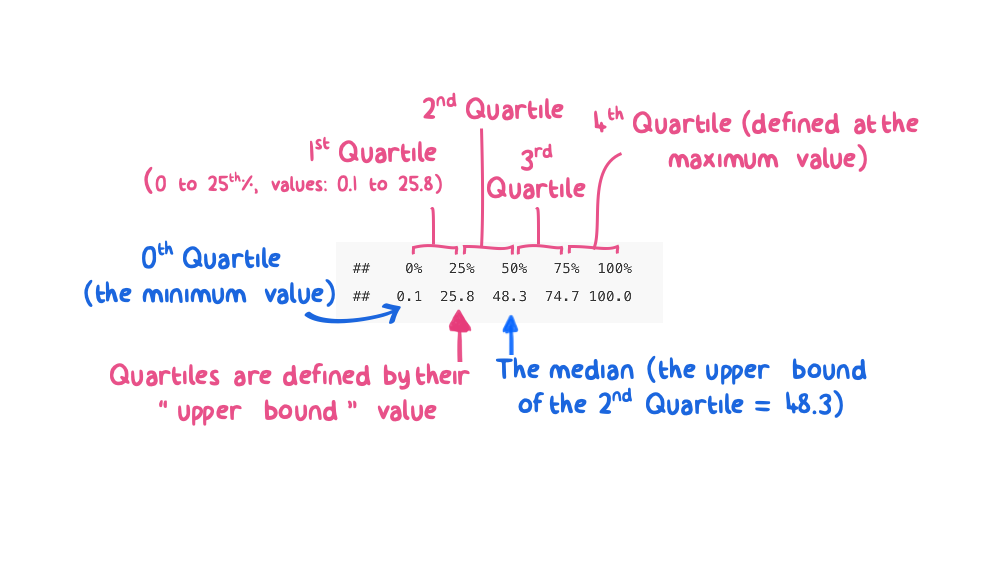 2nd Quartile
4th Quartile (defined at the
maximum value)
1st Quartile
(0 to 25th%, values: 0.1 to 25.8)
3rd
Quartile
0th Quartile
(the minimum value)
## 0% 25% 50% 75% 100%
## 0.1 25.8 48.3 74.7 100.0
Quartiles are defined by their
"upper bound" value
The median (the upper bound
of the 2nd Quartile = 48.3)